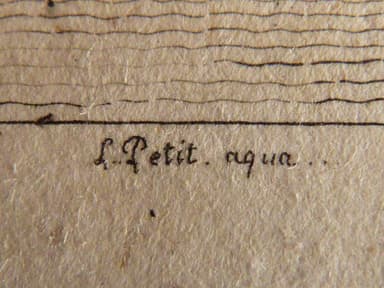 L. Petit. aqua...